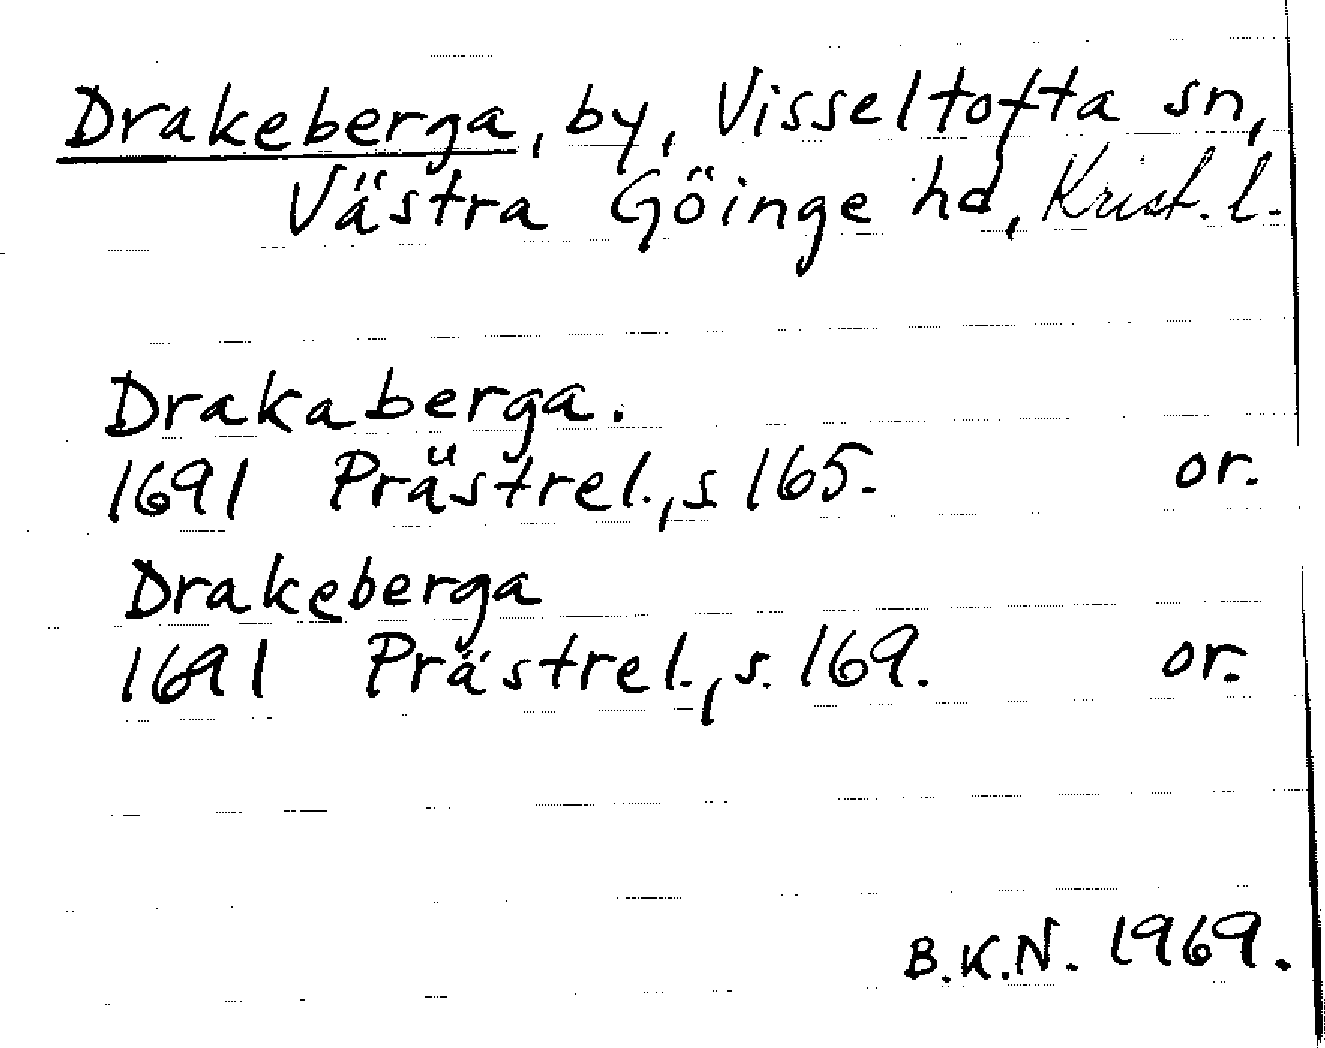 Drakeberga, by, Visseltofta sn,
Västra Göinge hd, Krist. l.
Drakaberga.
1691 Prästrel., s 165. or.
Drakeberga
1691 Prästrel., s. 169. or.
B.K.N. 1969.